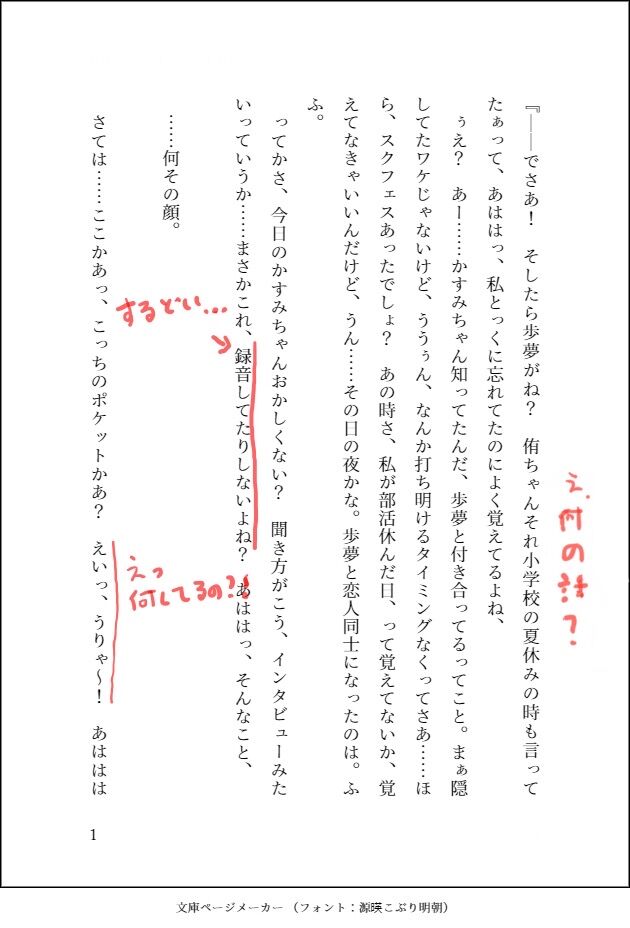 『――でさあ！　そしたら歩夢がね？　侑ちゃんそれ小学校の夏休みの時も言って
たぁって、あははっ、私とっくに忘れてたのによく覚えてるよね、
え、何の話？
ぅえ？　あー……かすみちゃん知ってたんだ、歩夢と付き合ってるってこと。まぁ隠
してたワケじゃないけど、ううぅん、なんか打ち明けるタイミングなくってさあ……ほ
ら、スクフェスあったでしょ？　あの時さ、私が部活休んだ日、って覚えてないか、覚
えてなきゃいいんだけど、うん……その日の夜かな。歩夢と恋人同士になったのは。ふ
ふ。
ってかさ、今日のかすみちゃんおかしくない？　聞き方がこう、インタビューみた
いっていうか……まさかこれ、録音してたりしないよね？　あははっ、そんなこと、
するどい…→
……何その顔。
さては……ここかあっ、こっちのポケットかあ？　えいっ、うりゃ～！　あははは
えっ
何してるの?!
1
文庫ページメーカー （フォント：源暎こぶり明朝）